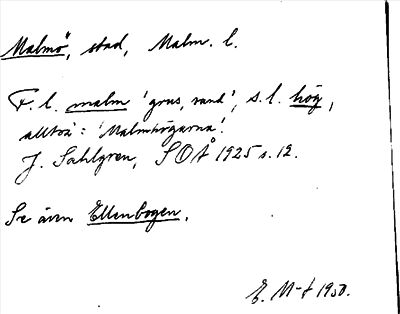 Malmö, stad, Malm. l.
F. l. malm 'grus, sand', s. l. hög,
alltså: 'Malmhögarna'.
J. Sahlgren, SOÅ 1925 s. 12.
Se även Ellenbogen.
1950.